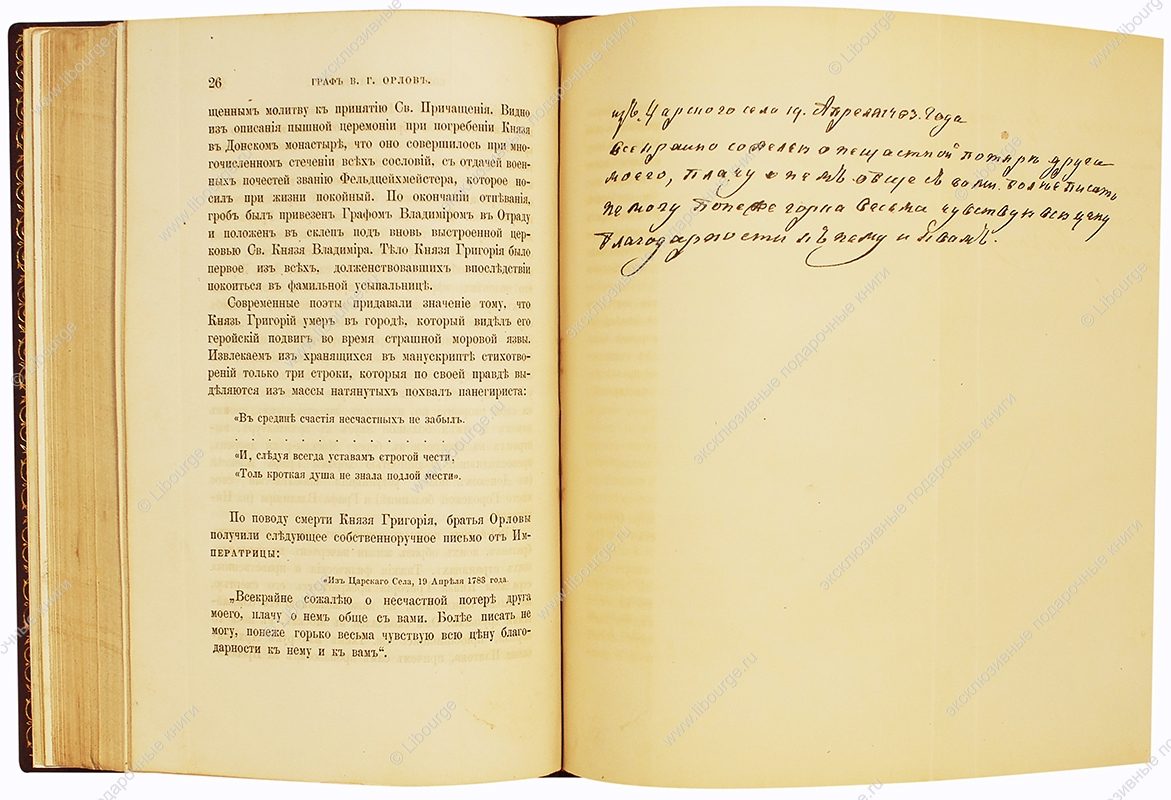 26
ГРАФЪ В. Г. ОРЛОВЪ.
щеннымъ молитву къ принятію Св. Причащенія. Видно
изъ описанія пышной церемоніи при погребеніи Князя
въ Донскомъ монастырѣ, что оно совершилось при мно-
гочисленномъ стеченіи всѣхъ сословій, съ отдачей воен-
ныхъ почестей званію Фельдцейхмейстера, которое но-
силъ при жизни покойный. По окончаніи отпѣванія,
гробъ былъ привезенъ Графомъ Владиміромъ въ Отраду
и положенъ въ склепъ подъ вновь выстроенной цер-
ковью Св. Князя Владиміра. Тѣло Князя Григорія было
первое изъ всѣхъ, долженствовавшихъ впослѣдствіи
покоиться въ фамильной усыпальницѣ.
Современные поэты придавали значеніе тому, что
Князь Григорій умеръ въ городѣ, который видѣлъ его
геройскій подвигъ во время страшной моровой язвы.
Извлекаемъ изъ хранящихся въ манускриптѣ стихотво-
реній только три строки, которыя по своей правдѣ вы-
дѣляются изъ массы натянутыхъ похвалъ панегириста:
«Въ срединѣ счастія несчастныхъ не забылъ.
. . . . . . . . . . . . .
«И, слѣдуя всегда уставамъ строгой чести,
«Толь кроткая душа не знала подлой мести».
По поводу смерти Князя Григорія, братья Орловы
получили слѣдующее собственноручное письмо отъ Им-
ПЕРАТРИЦЫ:
«Изъ Царскаго Села, 19 Апрѣля 1783 года.
„Всекрайне сожалѣю о несчастной потерѣ друга
моего, плачу о немъ обще съ вами. Болѣе писать не
могу, понеже горько весьма чувствую всю цѣну благо-
дарности къ нему и къ вамъ“.
изъ Царского села 19. Апреля 1783. года
моего, плачу о немъ обще съ вами. более писать
не могу понеже горка весьма чувствую всю цену
благодарности къ нему и къ вамъ.
© Libourge
www.libourge.ru
эксклюзивные подарочные книги